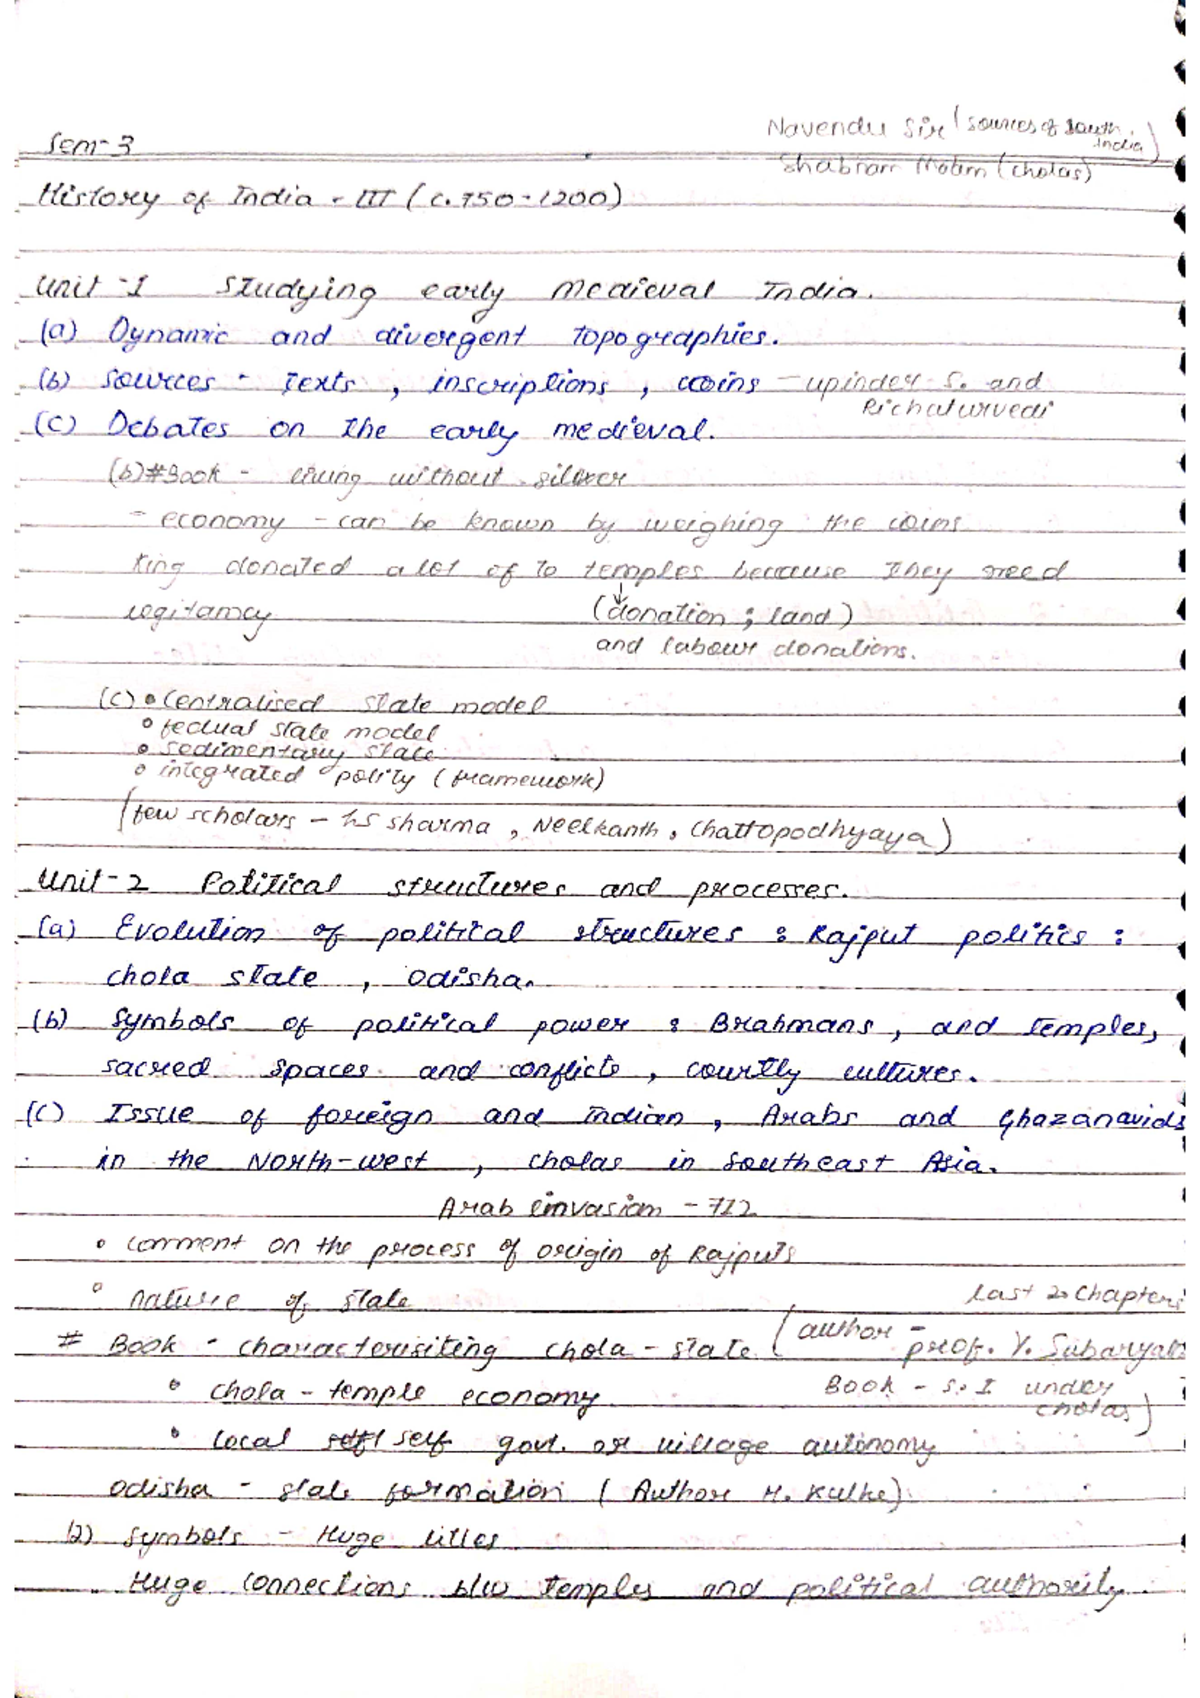 Navendu Sir (sources of South
India)
Sem-3
Shabnam (cholas)
History of India - III (c. 750-1200)
Unit-1 Studying early medieval India.
(a) Dynamic and divergent topographies.
(b) Sources - Texts, inscriptions, coins - upinder S. and
Richaturvedi
(c) Debates on the early medieval.
(b) #Book - living without silver
- economy - can be known by weighing the coins
King donated a lot of to temples because they need
legitamacy (donation ; land)
and labour donations.
(c) • Centralised state model
• feudual state model
• sedimentary state
• integrated polity (framework)
(few scholars - RS Sharma, Neelkanth, Chattopodhyaya)
Unit-2 Political structures and processes.
(a) Evolution of political structures : Rajput politics :
chola state, odisha.
(b) Symbols of political power : Brahmans, and temples,
sacred spaces and conflicts, courtly cultures.
(c) Issue of foreign and Indian, Arabs and Ghazanavids
in the North-west, cholas in Southeast Asia.
Arab invasion - 712
• comment on the process of origin of Rajputs
• nature of state
Last 2 Chapters
# Book - characterisiting chola-state (author -
prof. Y. Subaryals
• chola-temple economy
Book - S.I under
cholas)
• local self govt. or village autonomy
odisha - state formation (Author H. Kulke)
(2) symbols - Huge titles
Huge connections b/w temples and political authority